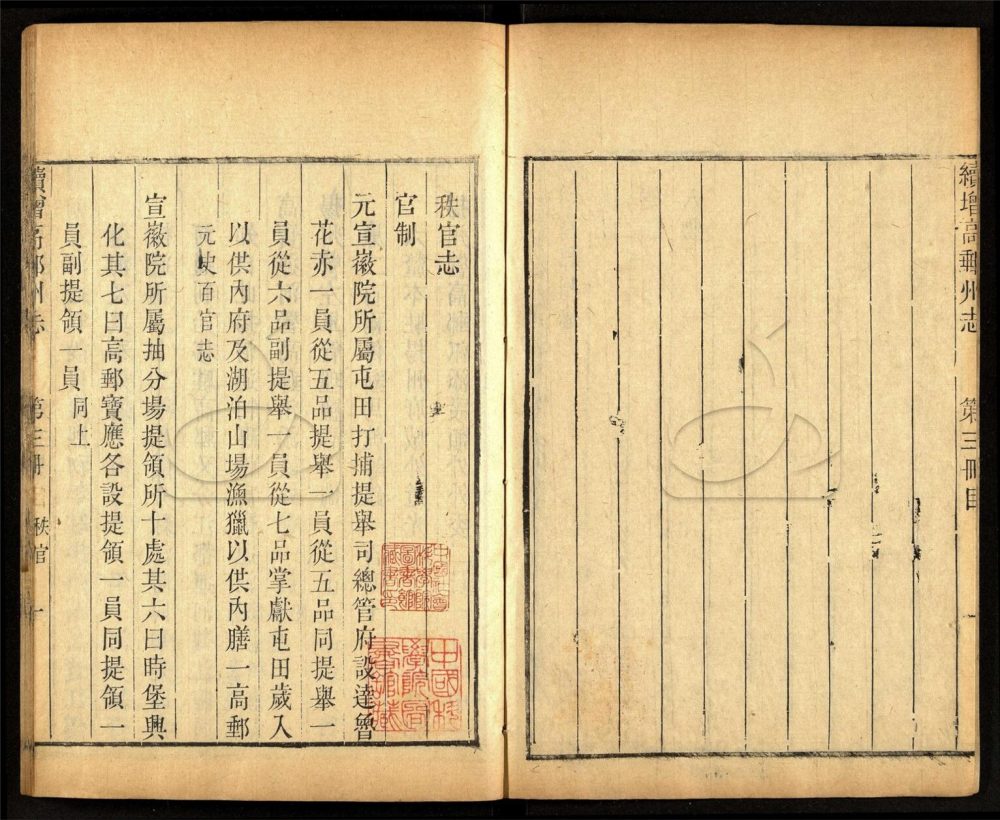 續增高郵州志 第三冊目
秩官志
官制
元宣徽院所屬屯田打捕提舉司總管府設達魯
花赤一員從五品提舉一員從五品同提舉一
員從六品副提舉一員從七品掌獻屯田歲入
以供內府及湖泊山場漁獵以供內膳一高郵
元史百官志
宣徽院所屬抽分場提領所十處其六曰時堡興
化其七曰高郵寶應各設提領一員同提領一
員副提領一員 同上
續增高郵州志 第三冊 秩官 一
中國科學院圖書館藏